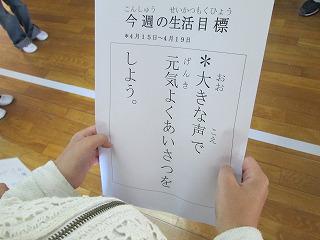 こんしゅう せいかつもくひょう
今週の生活目標
＊４月１５日～４月１９日
おお こえ
＊大きな声で
げんき
元気よくあいさつを
しよう。